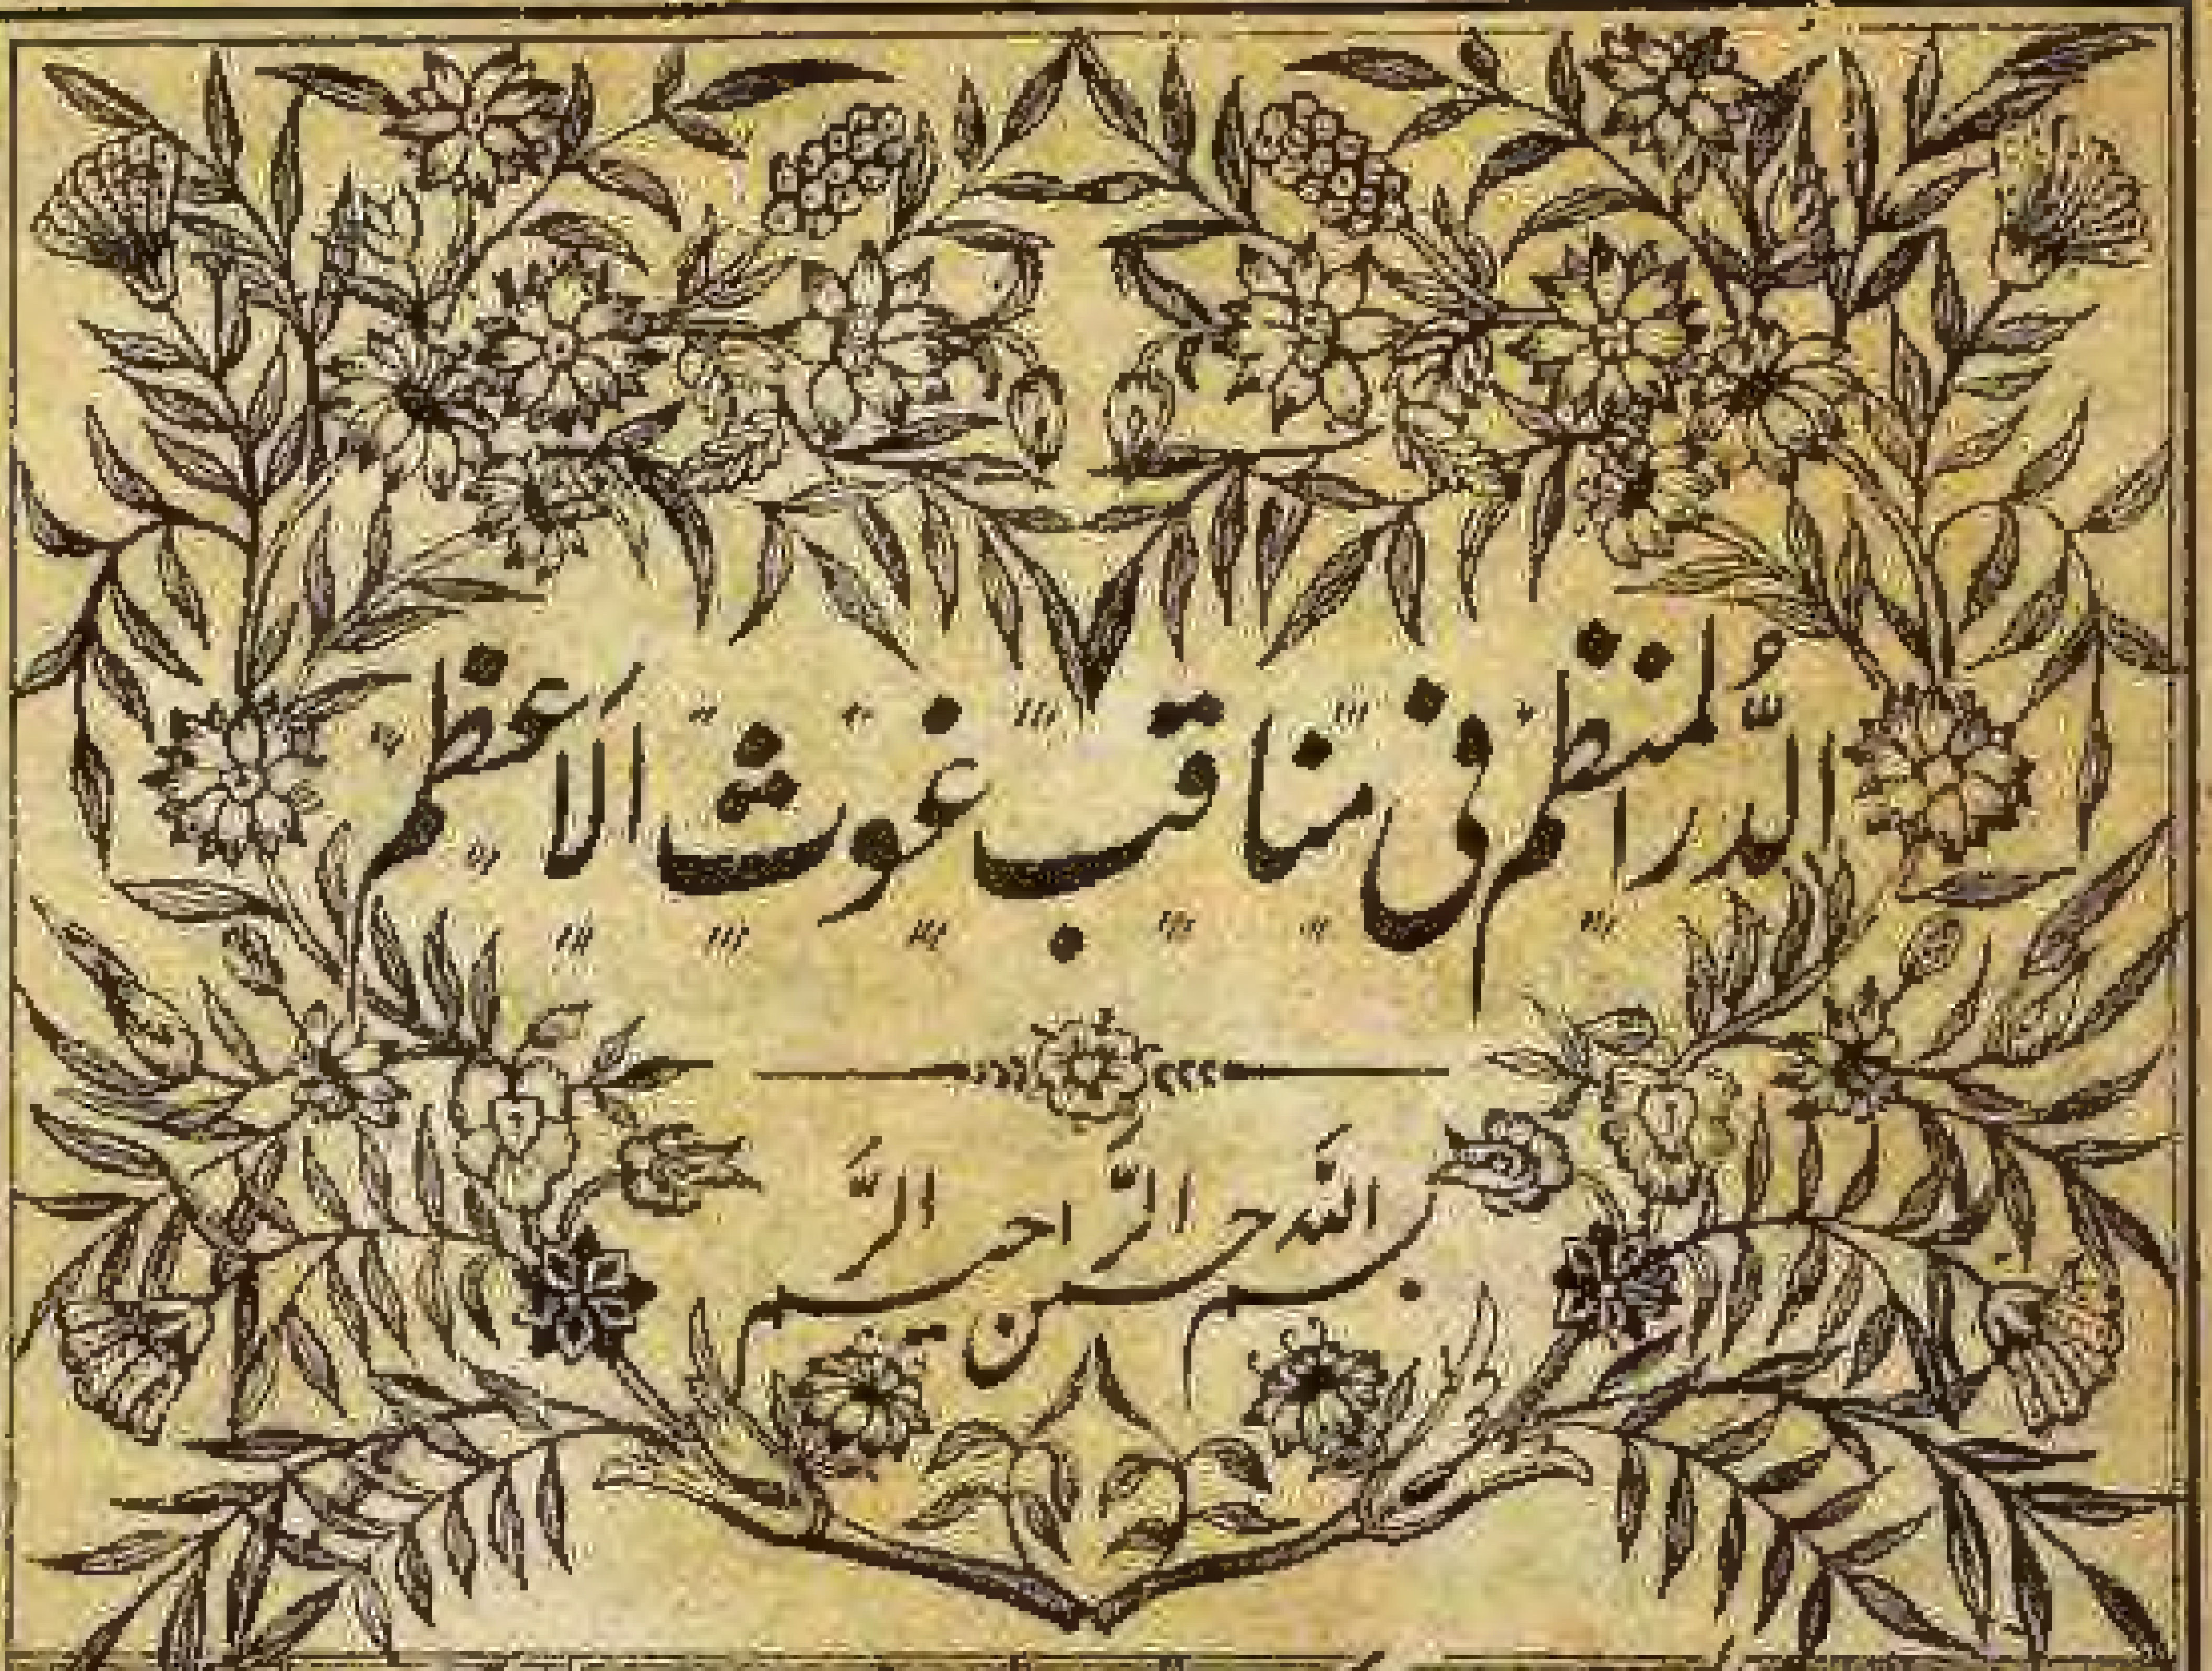 الدُّرُ المنتظم فی مناقب غوث الاَعظم
بسم اللّٰه الرَّحمن الرَّحیم